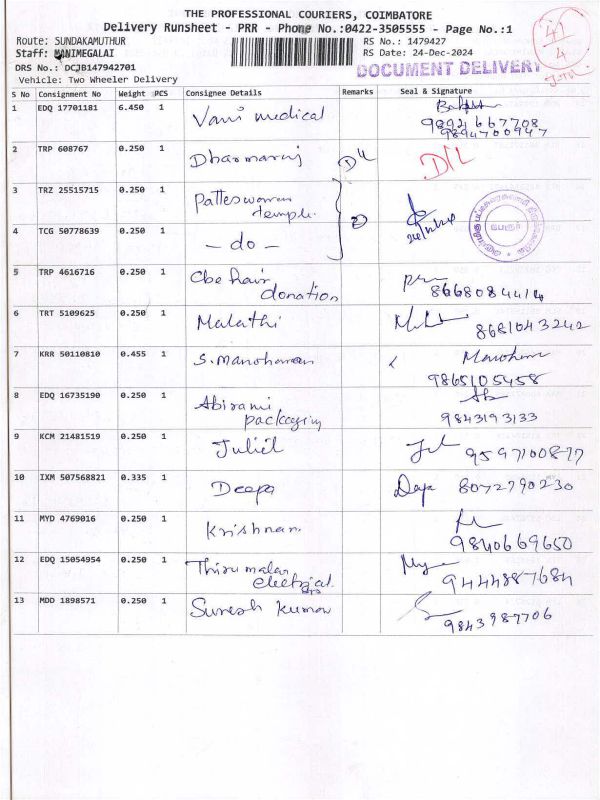 THE PROFESSIONAL COURIERS, COIMBATORE
Delivery Runsheet - PRR - Phone No.:0422-3505555 - Page No.:1
Route: SUNDAKAMUTHUR RS No.: 1479427
Staff: MANIMEGALAI RS Date: 24-Dec-2024
DRS No.: DCJB147942701 DOCUMENT DELIVERY
Vehicle: Two Wheeler Delivery
S No Consignment No Weight PCS Consignee Details Remarks Seal & Signature
1 EDQ 17701181 6.450 1 Vani medical
9894667708
9894700947
2 TRP 608767 0.250 1 Dharmaraj D/L D/L
3 TRZ 25515715 0.250 1 Patteswaran
temple
4 TCG 50778639 0.250 1 - do -
5 TRP 4616716 0.250 1 Cbe hair
donation 8668084414
6 TRT 5109625 0.250 1 Malathi 8681043242
7 KRR 50110810 0.455 1 S. Manoharan
9865105458
8 EDQ 16735190 0.250 1 Abirami
packaging 9843193133
9 KCM 21481519 0.250 1 Juliet 9597700877
10 IXM 507568821 0.335 1 Deepa 8072790230
11 MYD 4769016 0.250 1 Krishnan
9840669650
12 EDQ 15054954 0.250 1 Thirumalai
electrical 9444887684
13 MDD 1898571 0.250 1 Suresh Kumar
9843987706